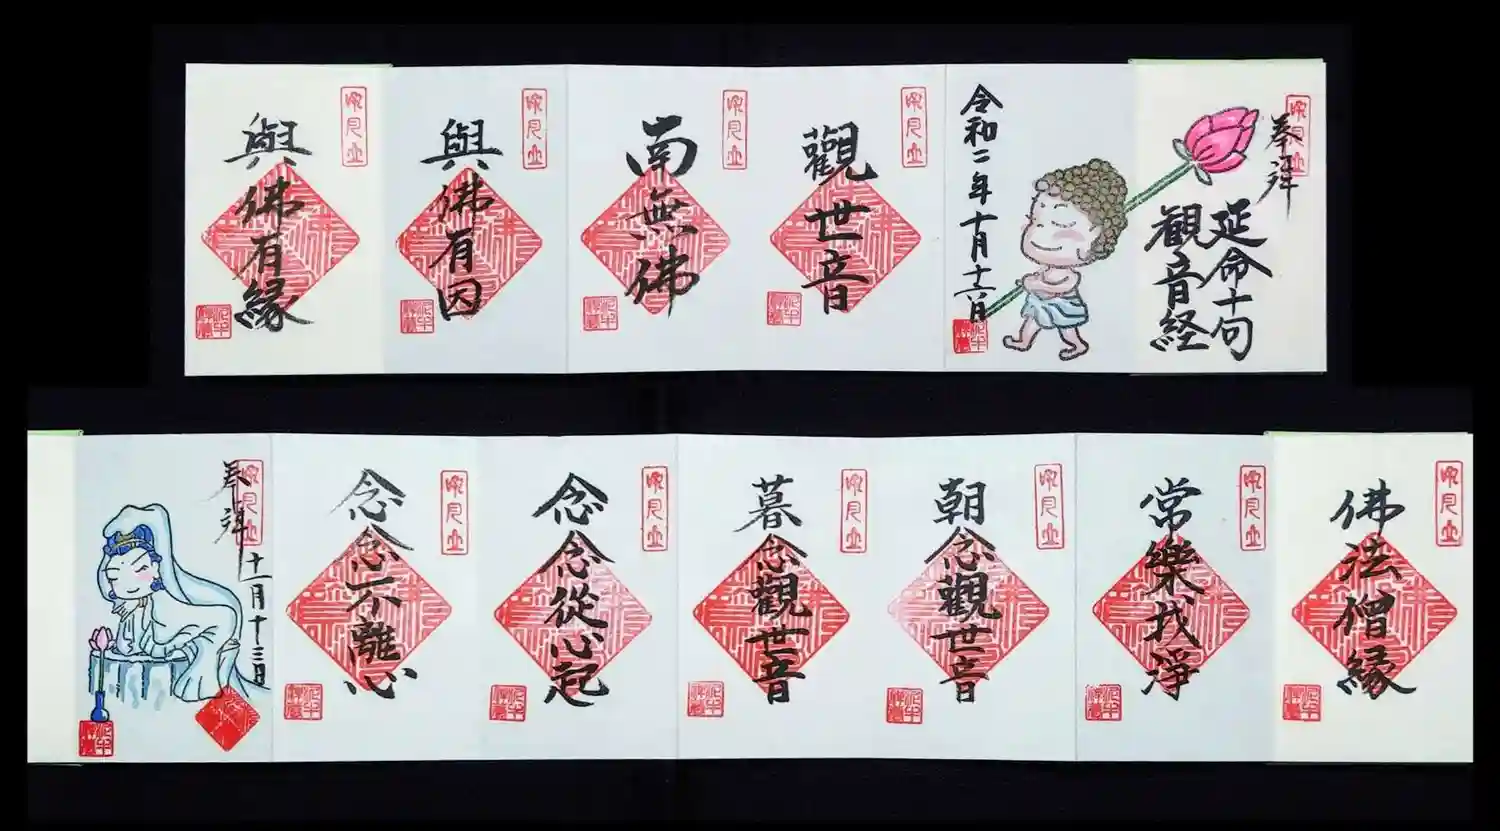 奉拝
延命十句
観音経
令和二年十月十六日
觀世音
南無佛
與佛有因
與佛有縁
佛法僧縁
常樂我淨
朝念觀世音
暮念觀世音
念念從心起
念念不離心
奉拝
十一月十三日